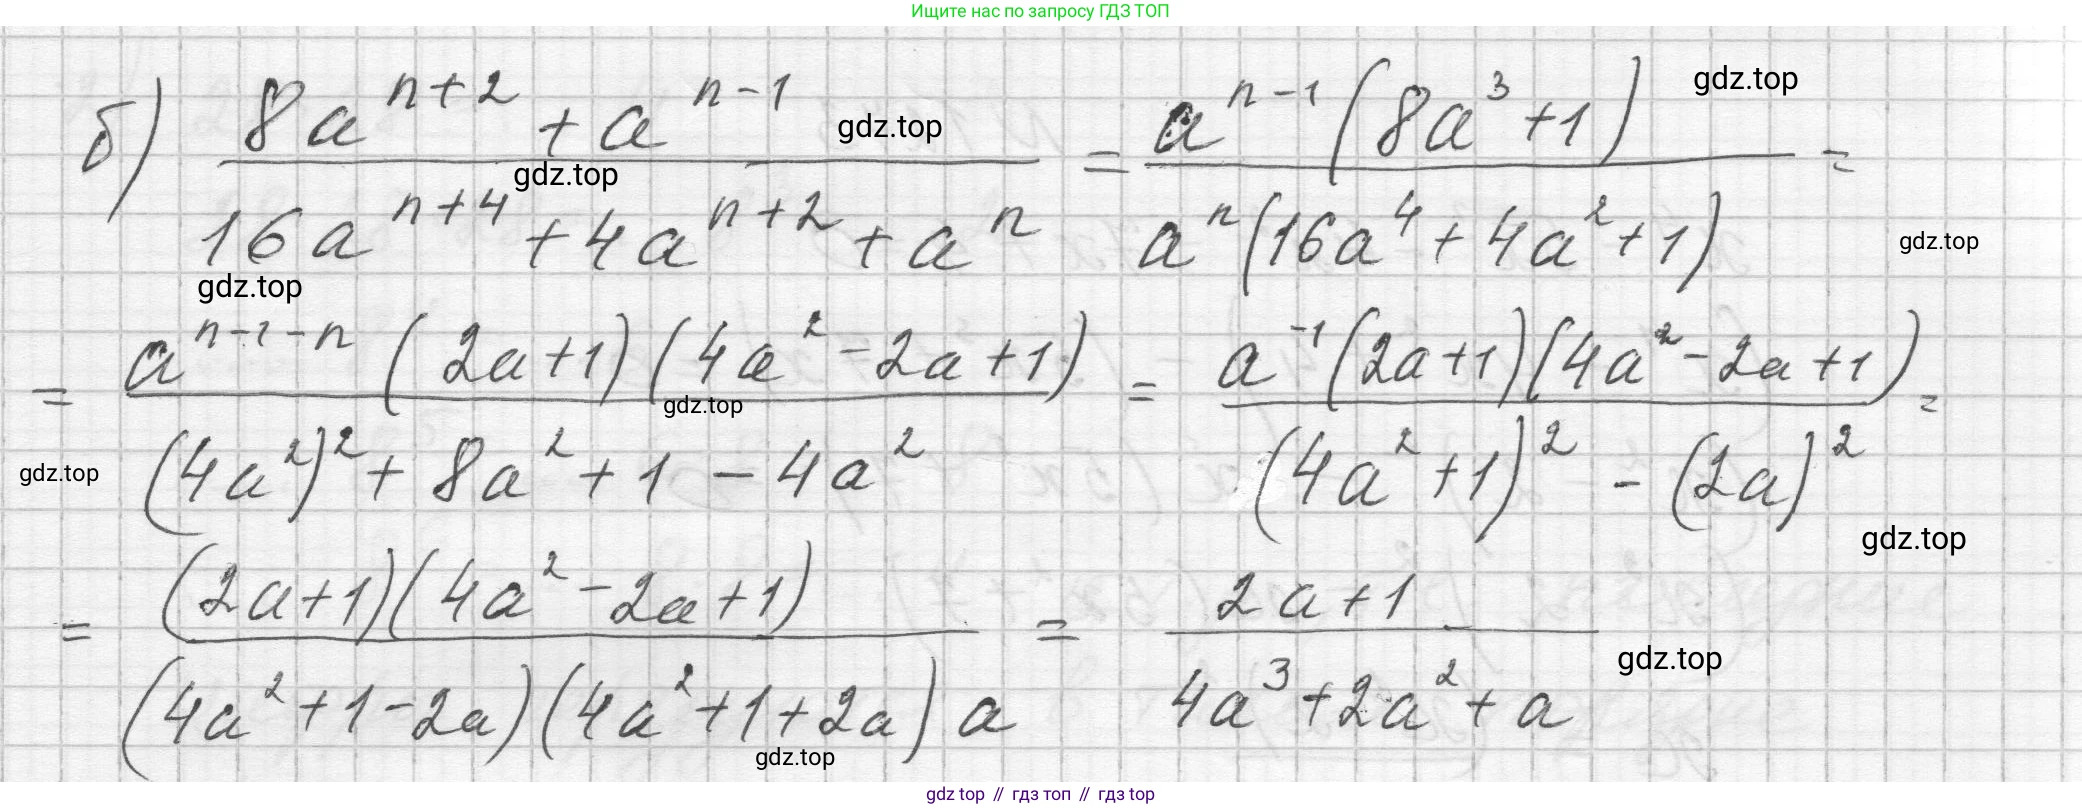 Ищите нас по запросу ГДЗ ТОП
б) (8a^{n+2} + a^{n-1}) / (16a^{n+4} + 4a^{n+2} + a^n) = a^{n-1}(8a^3 + 1) / a^n(16a^4 + 4a^2 + 1) =
gdz.top
gdz.top
gdz.top
gdz.top
gdz.top
= a^{n-1-n}(2a+1)(4a^2 - 2a + 1) / ((4a^2)^2 + 8a^2 + 1 - 4a^2) = a^{-1}(2a+1)(4a^2 - 2a + 1) / ((4a^2 + 1)^2 - (2a)^2) =
gdz.top
gdz.top
gdz.top
= (2a+1)(4a^2 - 2a + 1) / (4a^2 + 1 - 2a)(4a^2 + 1 + 2a) a = (2a + 1) / (4a^3 + 2a^2 + a)
gdz.top
gdz.top
gdz top // гдз топ // гдз top